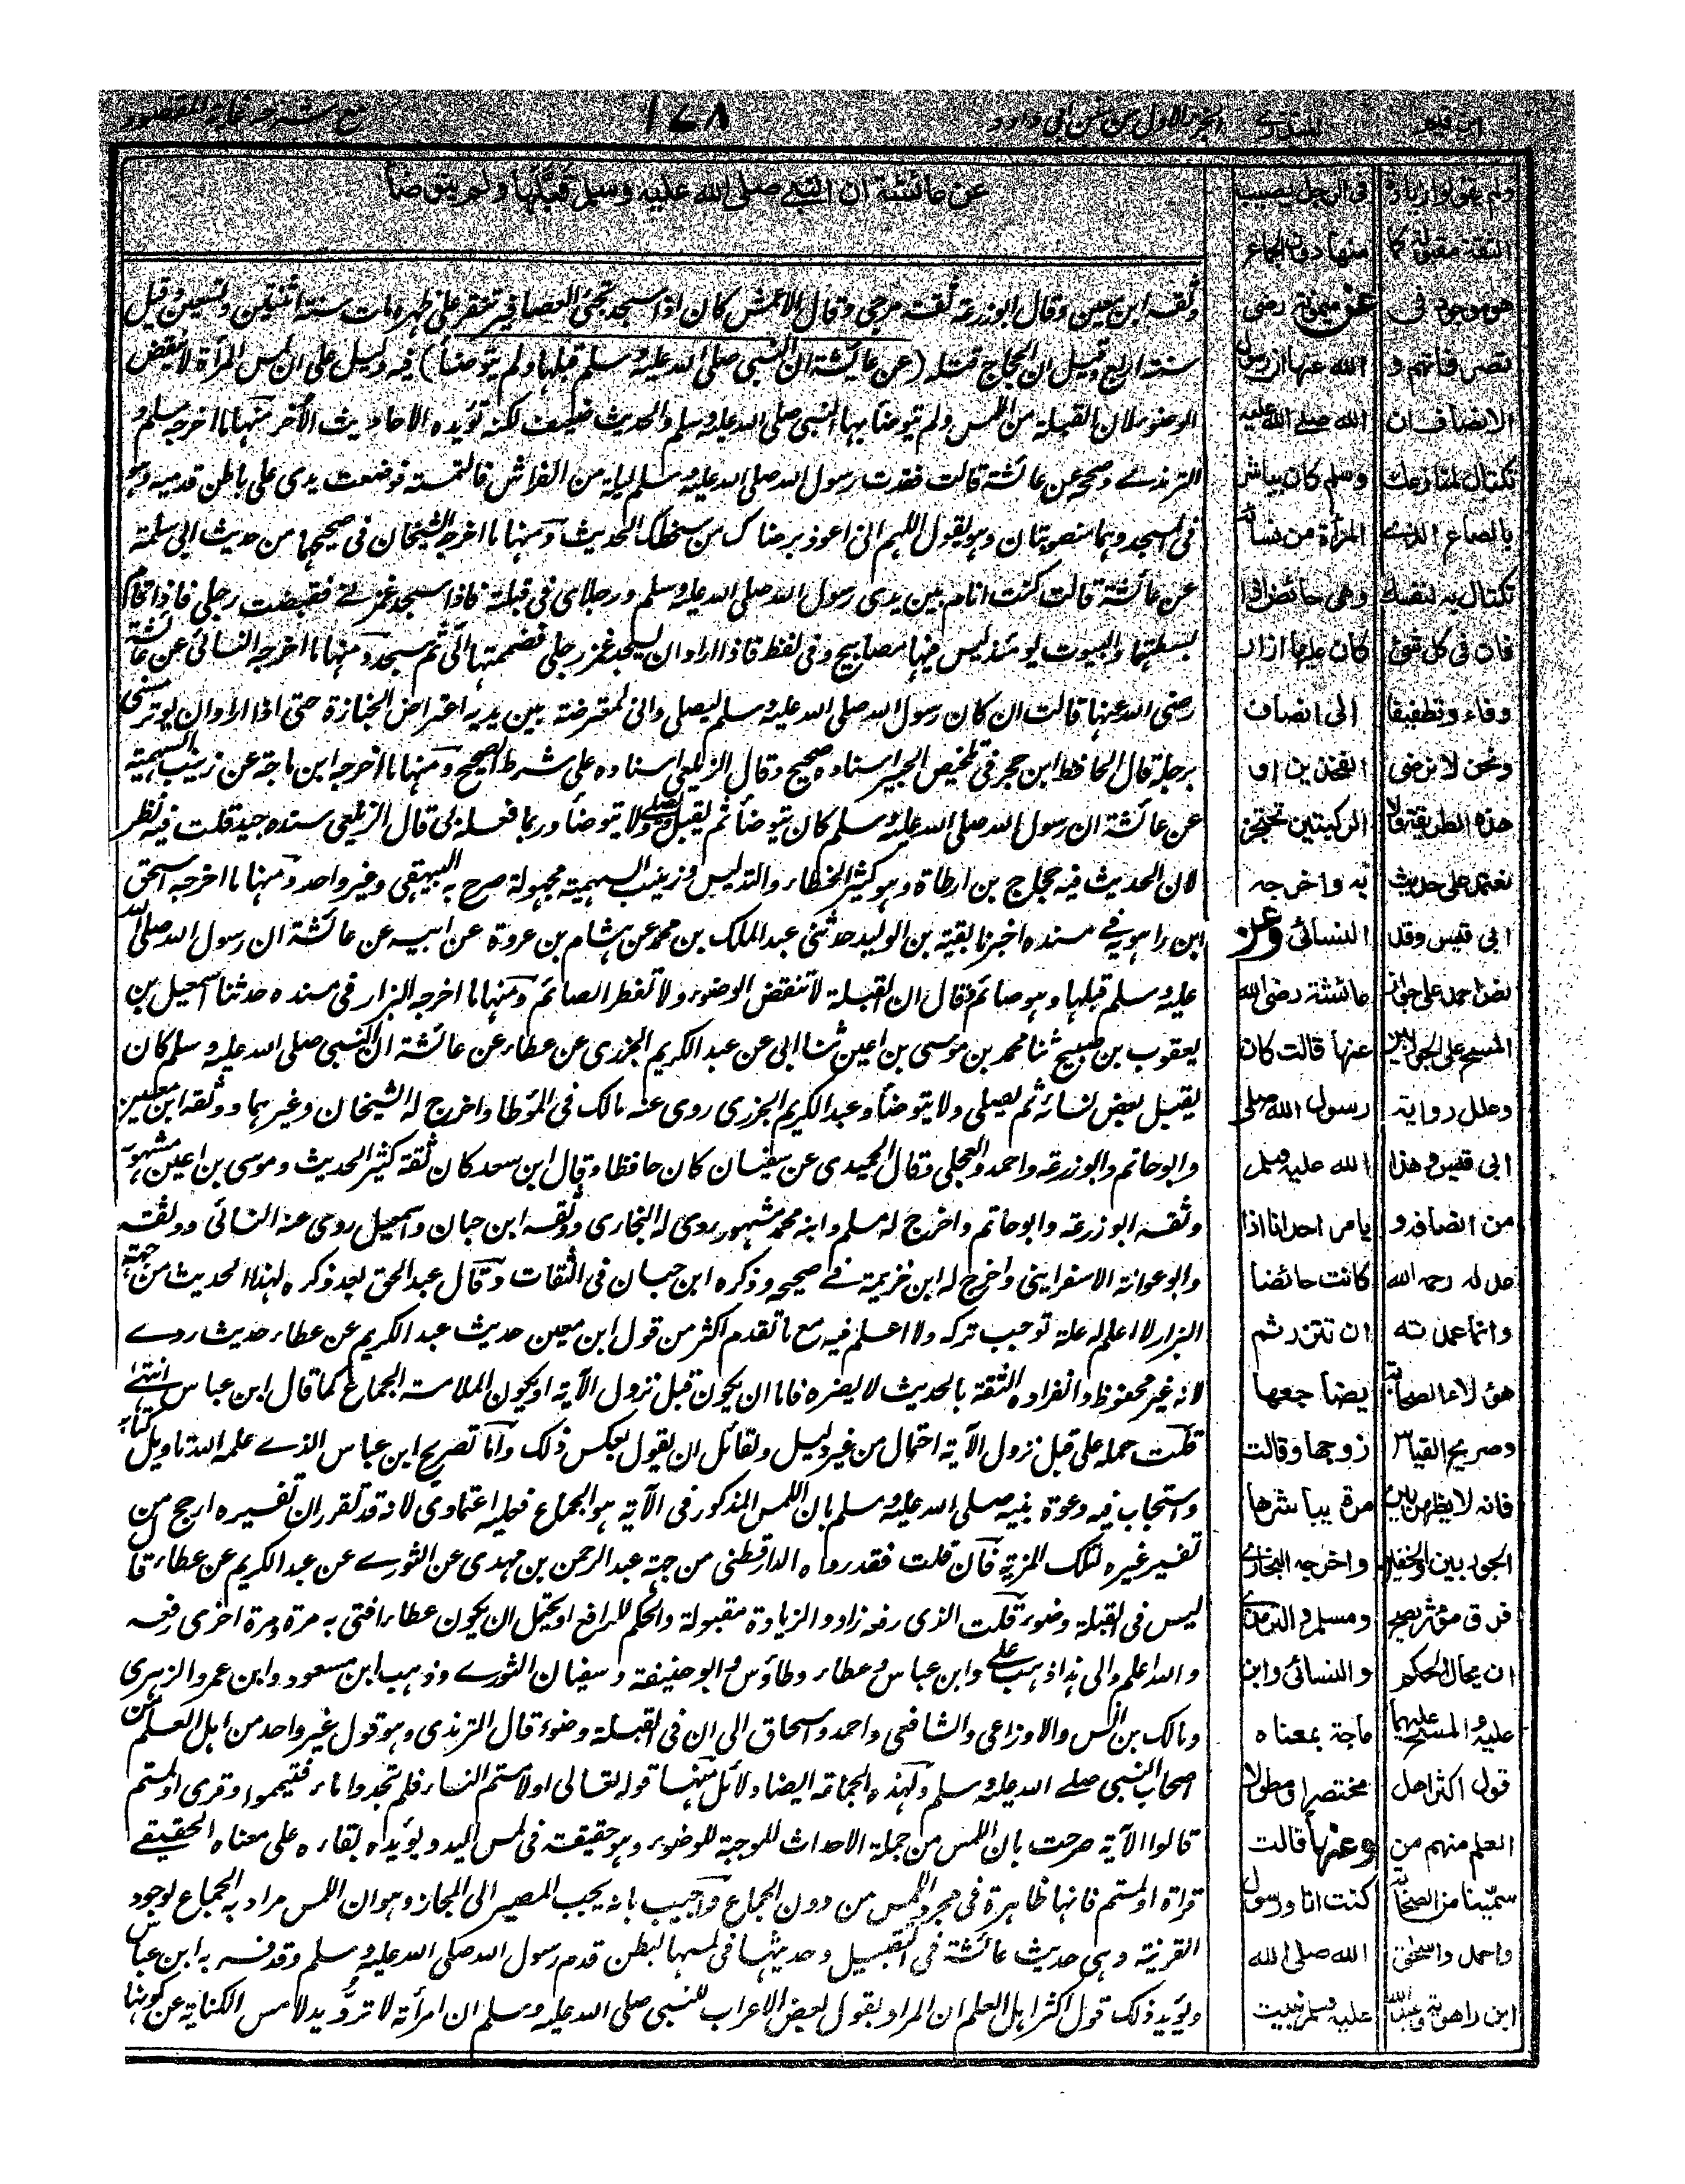 ابن قيم
المنذري
الجزء الاول من سنن ابي داود
١٧٨
مع شرحه غاية المقصود
عن عائشة ان النبي صلى الله عليه وسلم قبّلها ولم يتوضأ
وثقه ابن معين وقال ابو زرعة ثقة مرجئ وقال الاعمش كان اذا سجد تجئ العصافير تنقر على ظهره مات سنة اثنتين وتسعين وقيل
سنة اربع وقيل ان الحجاج قتله (عن عائشة ان النبي صلى الله عليه وسلم قبلها ولم يتوضأ) فيه دليل على ان لمس المرأة لا ينقض
الوضوء لان القبلة من اللمس ولم يتوضأ بها النبي صلى الله عليه وسلم والحديث ضعيف لكنه تؤيده الاحاديث الأخر منها ما اخرجه مسلم و
الترمذي وصححه عن عائشة قالت فقدت رسول الله صلى الله عليه وسلم ليلة من الفراش فالتمسته فوضعت يدي على باطن قدميه وهو
في المسجد وهما منصوبتان وهو يقول اللهم اني اعوذ برضاك من سخطك الحديث ومنها ما اخرجه الشيخان في صحيحهما من حديث ابي سلمة
عن عائشة قالت كنت انام بين يدي رسول الله صلى الله عليه وسلم ورجلاي في قبلته فاذا سجد غمزني فقبضت رجلي فاذا قام
بسطتها والبيوت يومئذ ليس فيها مصابيح وفي لفظ فاذا اراد ان يسجد غمز رجلي فضممتها اليّ ثم سجد ومنها ما اخرجه النسائي عن عائشة
رضي الله عنها قالت ان كان رسول الله صلى الله عليه وسلم ليصلي واني لمعترضة بين يديه اعتراض الجنازة حتى اذا اراد ان يوتر مسني
برجله قال الحافظ ابن حجر في تلخيص الحبير اسناده صحيح وقال الزيلعي اسناده على شرط الصحيح ومنها ما اخرجه ابن ماجة عن زينب السهمية
عن عائشة ان رسول الله صلى الله عليه وسلم كان يتوضأ ثم يقبل ويصلي ولا يتوضأ وربما فعله بي قال الزيلعي سنده جيد قلت فيه نظر
لان الحديث فيه حجاج بن ارطاة وهو كثير الخطاء والتدليس وزينب السهمية مجهولة صرح به البيهقي وغير واحد ومنها ما اخرجه اسحق
ابن راهويه في مسنده اخبرنا بقية بن الوليد حدثني عبد الملك بن محمد عن هشام بن عروة عن ابيه عن عائشة ان رسول الله صلى الله
عليه وسلم قبلها وهو صائم وقال ان القبلة لا تنقض الوضوء ولا تفطر الصائم ومنها ما اخرجه البزار في مسنده حدثنا اسمعيل بن
يعقوب بن صبيح ثنا محمد بن موسى بن اعين ثنا ابي عن عبد الكريم الجزري عن عطاء عن عائشة ان النبي صلى الله عليه وسلم كان
يقبل بعض نسائه ثم يصلي ولا يتوضأ وعبد الكريم الجزري روى عنه مالك في المؤطا واخرج له الشيخان وغيرهما ووثقه ابن معين
وابو حاتم وابو زرعة واحمد والعجلي وقال الحميدي عن سفيان كان حافظا وقال ابن سعد كان ثقة كثير الحديث وموسى بن اعين مشهور
وثقه ابو زرعة وابو حاتم واخرج له مسلم وابنه محمد مشهور روى له البخاري ووثقه ابن حبان واسمعيل روى عنه النسائي ووثقه
وابو عوانة الاسفرايني واخرج له ابن خزيمة في صحيحه وذكره ابن حبان في الثقات وقال عبد الحق بعد ذكره لهذا الحديث من جهة
البزار لا اعلم له علة توجب تركه ولا اعلم فيه مع ما تقدم اكثر من قول ابن معين حديث عبد الكريم عن عطاء حديث ردي
لانه غير محفوظ وانفراده الثقة بالحديث لا يضره فاما ان يكون قبل نزول الآية او يكون الملامسة الجماع كما قال ابن عباس انتهى
قلت حمله على قبل نزول الآية احتمال من غير دليل ولقائل ان يقول بعكس ذلك واما تصريح ابن عباس الذي علمه الله تاويل كتابه
واستجاب فيه دعوة نبيه صلى الله عليه وسلم بان اللمس المذكور في الآية هو الجماع فعليه اعتمادي لانه قد تقرر ان تفسيره ارجح من
تفسير غيره لتلك المزية فان قلت فقد رواه الدارقطني من جهة عبد الرحمن بن مهدي عن الثوري عن عبد الكريم عن عطاء قال
ليس في القبلة وضوء قلت الذي رفعه زاد والزيادة مقبولة والحكم للرافع او يحتمل ان يكون عطاء افتى به مرة ومرة اخرى رفعه
والله اعلم والى هذا ذهب علي وابن عباس وعطاء وطاؤس وابو حنيفة وسفيان الثوري وذهب ابن مسعود وابن عمر والزهري
ومالك بن انس والاوزاعي والشافعي واحمد واسحاق الى ان في القبلة وضوء قال الترمذي وهو قول غير واحد من اهل العلم من
اصحاب النبي صلى الله عليه وسلم ولهذه الجماعة ايضا دلائل منها قوله تعالى او لامستم النساء فلم تجدوا ماء فتيمموا وقرئ او لمستم
قالوا الآية صرحت بان اللمس من جملة الاحداث الموجبة للوضوء وهو حقيقة في لمس اليد ويؤيده بقاءه على معناه الحقيقي
قراة او لمستم فانها ظاهرة في مجرد اللمس من دون الجماع واجيب بانه يجب المصير الى المجاز وهو ان اللمس مراد به الجماع لوجود
القرينة وهي حديث عائشة في التقبيل وحديثها في لمسها لبطن قدم رسول الله صلى الله عليه وسلم وقد فسر به ابن عباس
ويؤيد ذلك قول اكثر اهل العلم ان المراد بقول بعض الاعراب للنبي صلى الله عليه وسلم ان امرأتي لا ترد يد لامس الكناية عن كونها
في الرجل يصيب
منها دون الجماع
عن ميمونة رضي
الله عنها ان رسول
الله صلى الله عليه
وسلم كان يباشر
المرأة من نسائه
وهي حائض اذا
كان عليها ازار
الى انصاف
الفخذين او
الركبتين تحتجز
به واخرجه
النسائي وعن
عائشة رضي الله
عنها قالت كان
رسول الله صلى
الله عليه وسلم
يامر احدانا اذا
كانت حائضا
ان تتزر ثم
يضاجعها
زوجها وقالت
مرة يباشرها
واخرجه البخاري
ومسلم والترمذي
والنسائي وابن
ماجة بمعناه
مختصرا ومطولا
وعنها قالت
كنت انا ورسول
الله صلى الله
عليه وسلم نبيت
ولم يقولوا زيادة
الثقة مقبولة كما
هو موجود في
نصر فاتهم و
الانصاف ان
تكتال لمنازعك
بالصاع الذي
تكتال به لنفسك
فان في كل شئ
وفاء وتطفيفا
ونحن لا نرضى
هذه الطريقة ولا
نعتمد على حديث
ابي قيس وقد
نص احمد على جواز
المسح على الجوربين
وعلل رواية
ابي قيس وهذا
من انصافه و
عدله رحمه الله
وانما عمدته
هؤلاء الصحابة
وصريح القياس
فانه لا يظهر بين
الجوربين والخفين
فرق مؤثر يصح
ان يحال الحكم
عليه والمسح عليهما
قول اكثر اهل
العلم منهم من
سمينا من الصحابة
واحمد واسحق
ابن راهويه وعبد الله